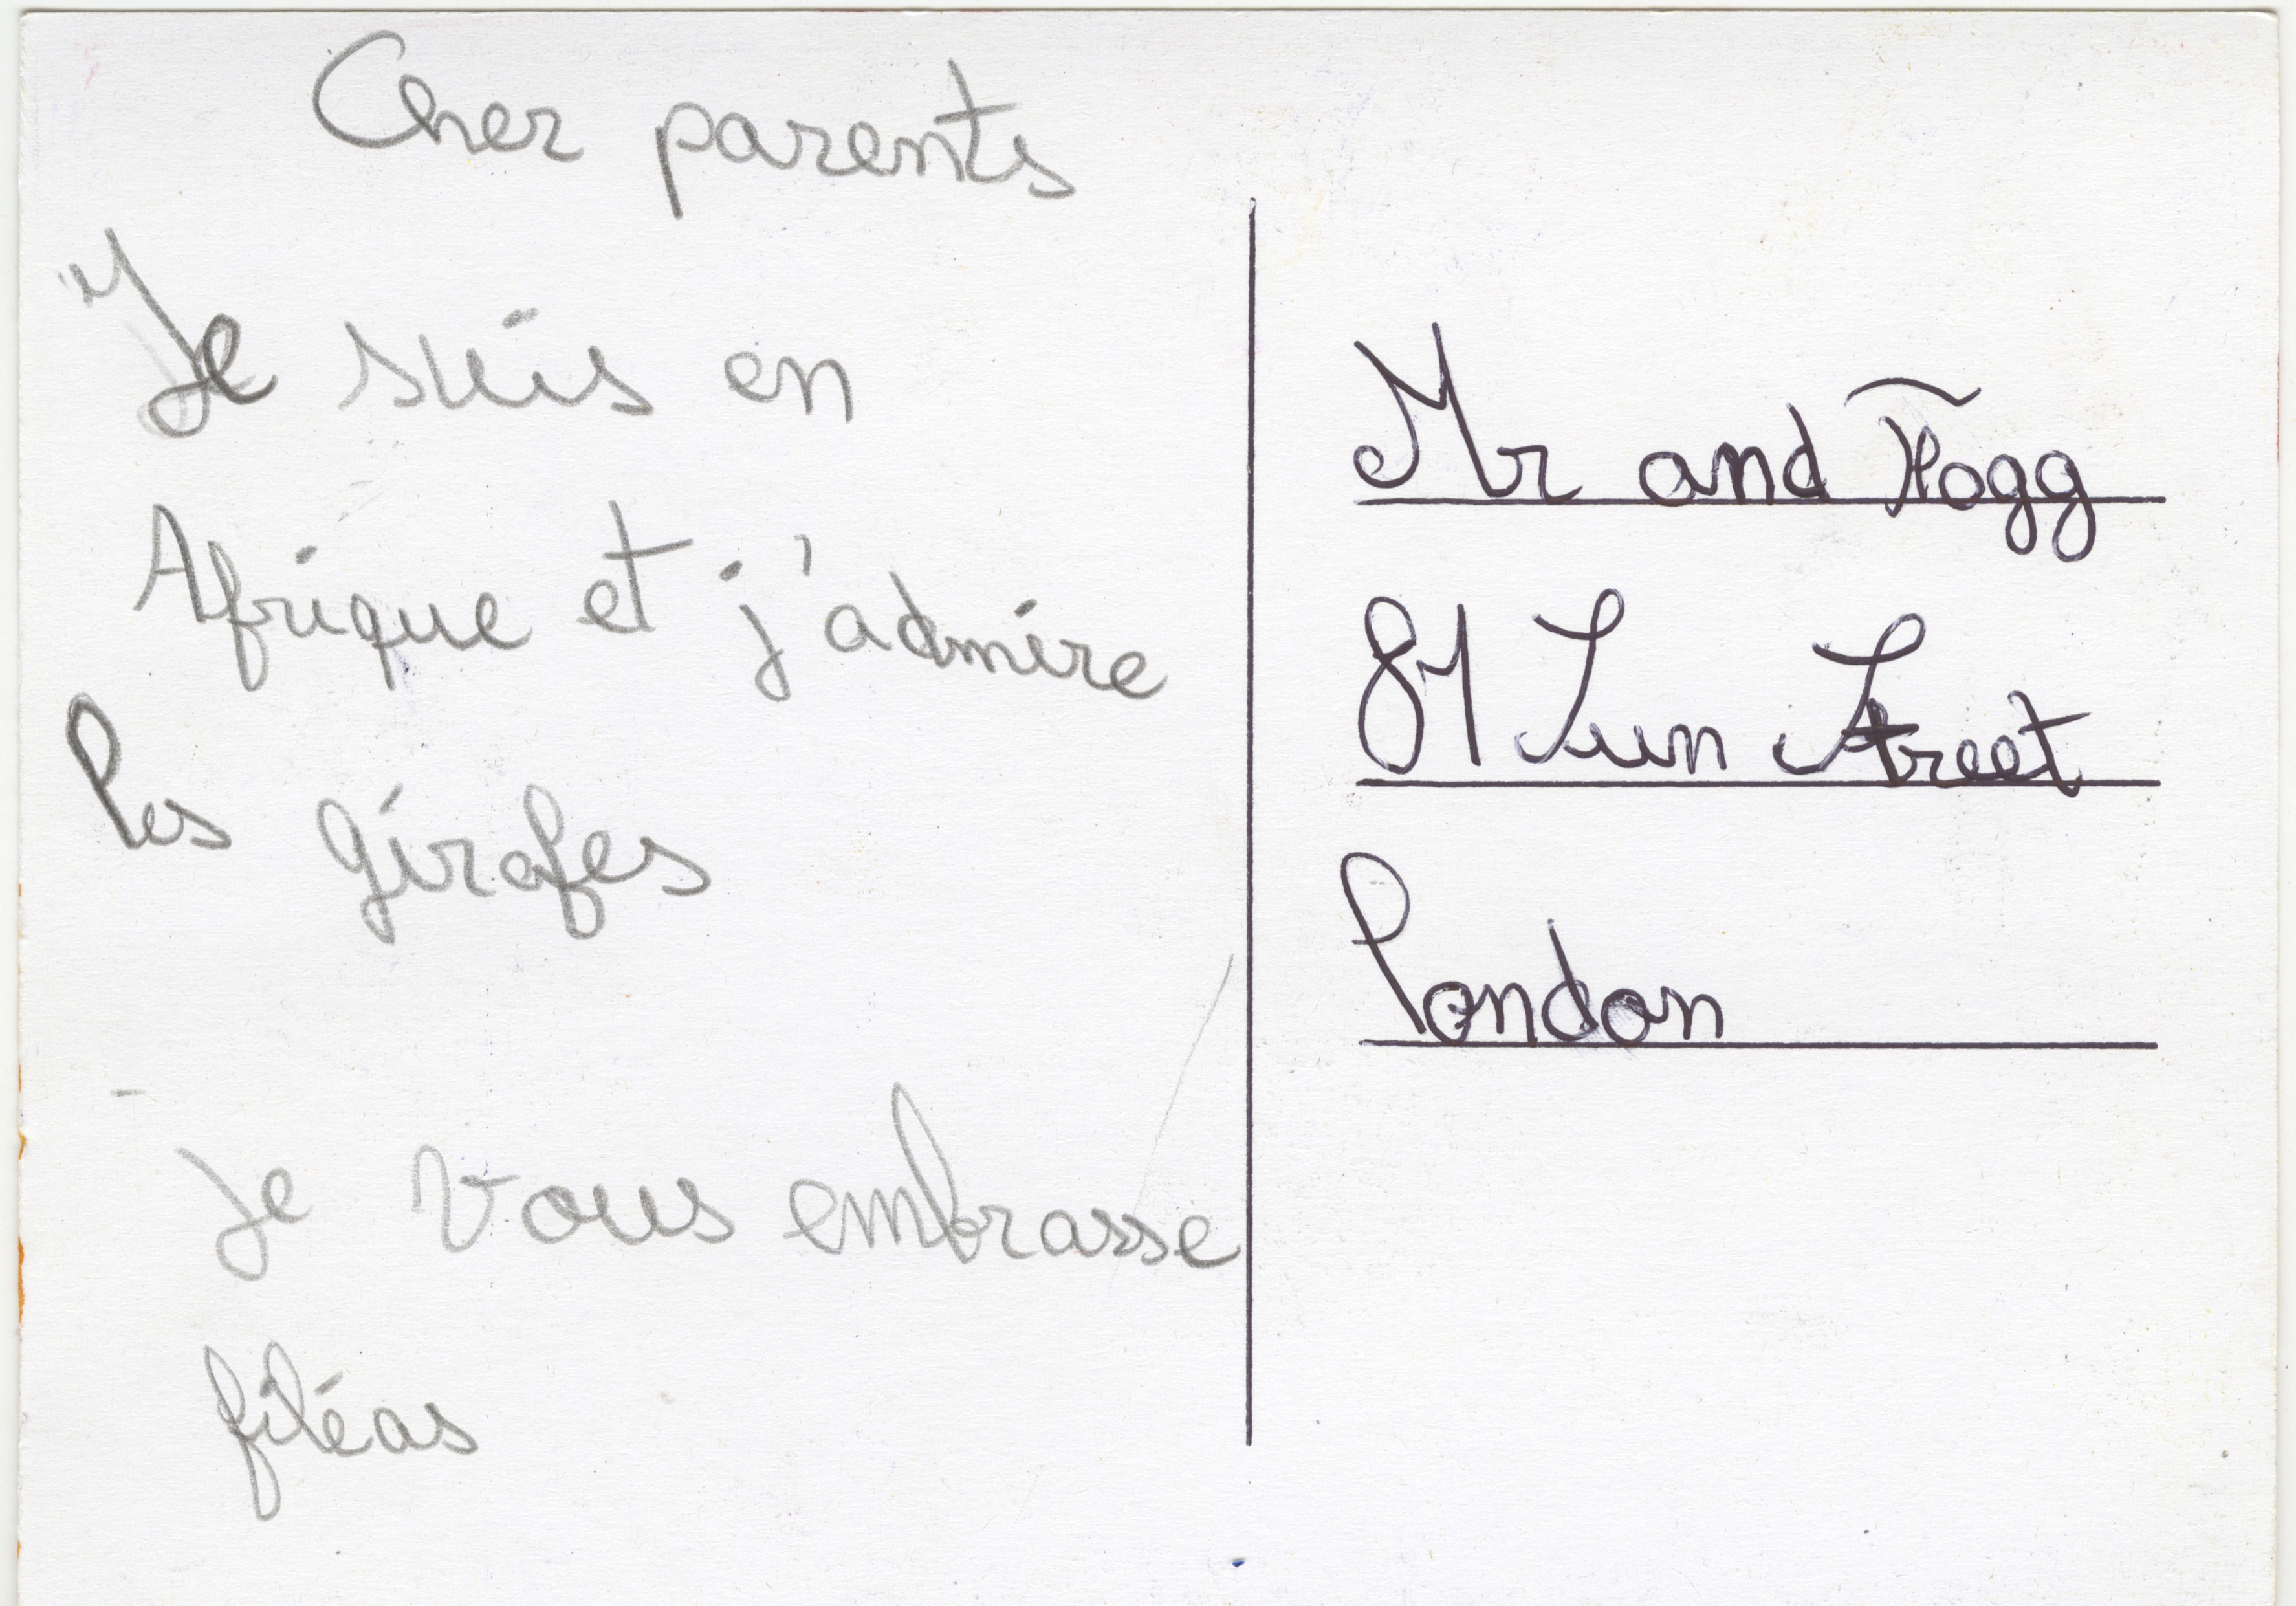 Cher parents
Je suis en
Afrique et j'admire
les girafes
Je vous embrasse
filéas
Mr and Fogg
81 Sun Street
London